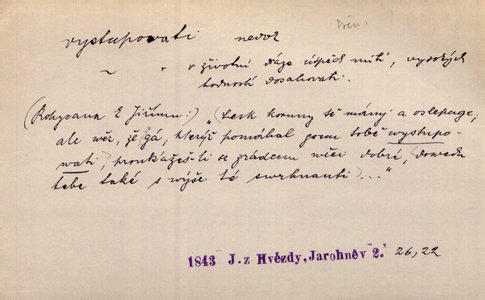 Přen.
vystupovati nedok
~ " v životní dráze úspěch míti, vysokých
hodností dosahovati.
(Rokycana k Jiřímu:) „Lesk koruny tě mámí a oslepuje,
ale věz, že já, kterýž pomáhal jsem tobě vystupo-
wati, proukážeš-li se zrádcem věci dobré, dowedu
tebe také s wýše té swrhnauti ..."
1843 J. z Hvězdy, Jarohněv 2. 26, 22